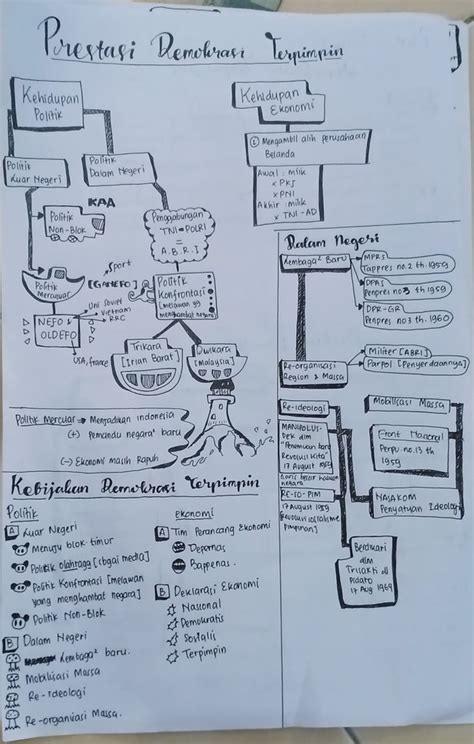 Prestasi Demokrasi Terpimpin
Kehidupan
Politik
Politik
Luar Negeri
Politik
Dalam Negeri
KAA
Politik
Non-Blok
Penggabungan
TNI + POLRI
=
A.B.R.I
Politik
Mercusuar
Sport
[GANEFO]
Uni Soviet
Vietnam
RRC
NEFO &
OLDEFO
USA, France
Politik
Konfrontasi
[melawan yg
menghambat negara]
Trikora
[Irian Barat]
Dwikora
[Malaysia]
Politik Mercusuar → Menjadikan Indonesia
(+) Pemandu negara² baru
(-) Ekonomi masih Rapuh
Kehidupan
Ekonomi
Mengambil alih perusahaan
Belanda
Awal : milik
x PKI
x PNI
Akhir : milik
x TNI-AD
Dalam Negeri
Lembaga² Baru
MPRS
Tappres no.2 th.1959
DPAS
Penpres no 3 th 1959
DPR-GR
Penpres no 3 th. 1960
Re-organisasi
Region & Massa
Militer [ABRI]
Parpol [Penyerdaannya]
Re-ideologi
MANIPOLUS-
DEK dlm
"Penemuan kem
Revolusi Kita"
17 August 1959
Garis besar haluan
negara
RE-SO-PIM
17 August 1959
Revolusi sosialisme
Pimpinan]
Mobilisasi Massa
Front Nasional
Penpu no.13 th
1959
NASAKOM
Penyatuan Ideologi
Berdikari
dlm
Trisakti dl
Pidato
17 Aug 1969
Kebijakan Demokrasi Terpimpin
Politik
A Luar Negeri
Menuju blok timur
Politik olahraga [sbgai media]
Politik Konfrontasi [melawan
yang menghambat negara]
Politik Non-Blok
B Dalam Negeri
Lembaga² baru.
Mobilisasi Massa
Re-Ideologi
Re-organisasi Massa.
Ekonomi
A Tim Perancang Ekonomi
Depernas
Bappenas.
B Deklarasi Ekonomi
Nasional
Demokratis
Sosialis
Terpimpin